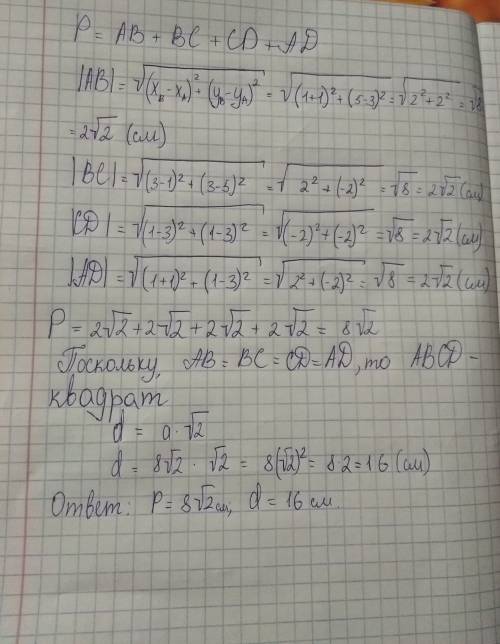 P = AB + BC + CD + AD
|AB| = √((x_B - x_A)² + (y_B - y_A)²) = √((1+1)² + (5-3)²) = √(2² + 2²) = √8
= 2√2 (см)
|BC| = √((3-1)² + (3-5)²) = √(2² + (-2)²) = √8 = 2√2 (см)
|CD| = √((1-3)² + (1-3)²) = √((-2)² + (-2)²) = √8 = 2√2 (см)
|AD| = √((1+1)² + (1-3)²) = √(2² + (-2)²) = √8 = 2√2 (см)
P = 2√2 + 2√2 + 2√2 + 2√2 = 8√2
Поскольку, AB = BC = CD = AD, то ABCD -
квадрат
d = a · √2
d = 8√2 · √2 = 8(√2)² = 8·2 = 16 (см)
Ответ: P = 8√2 см, d = 16 см.